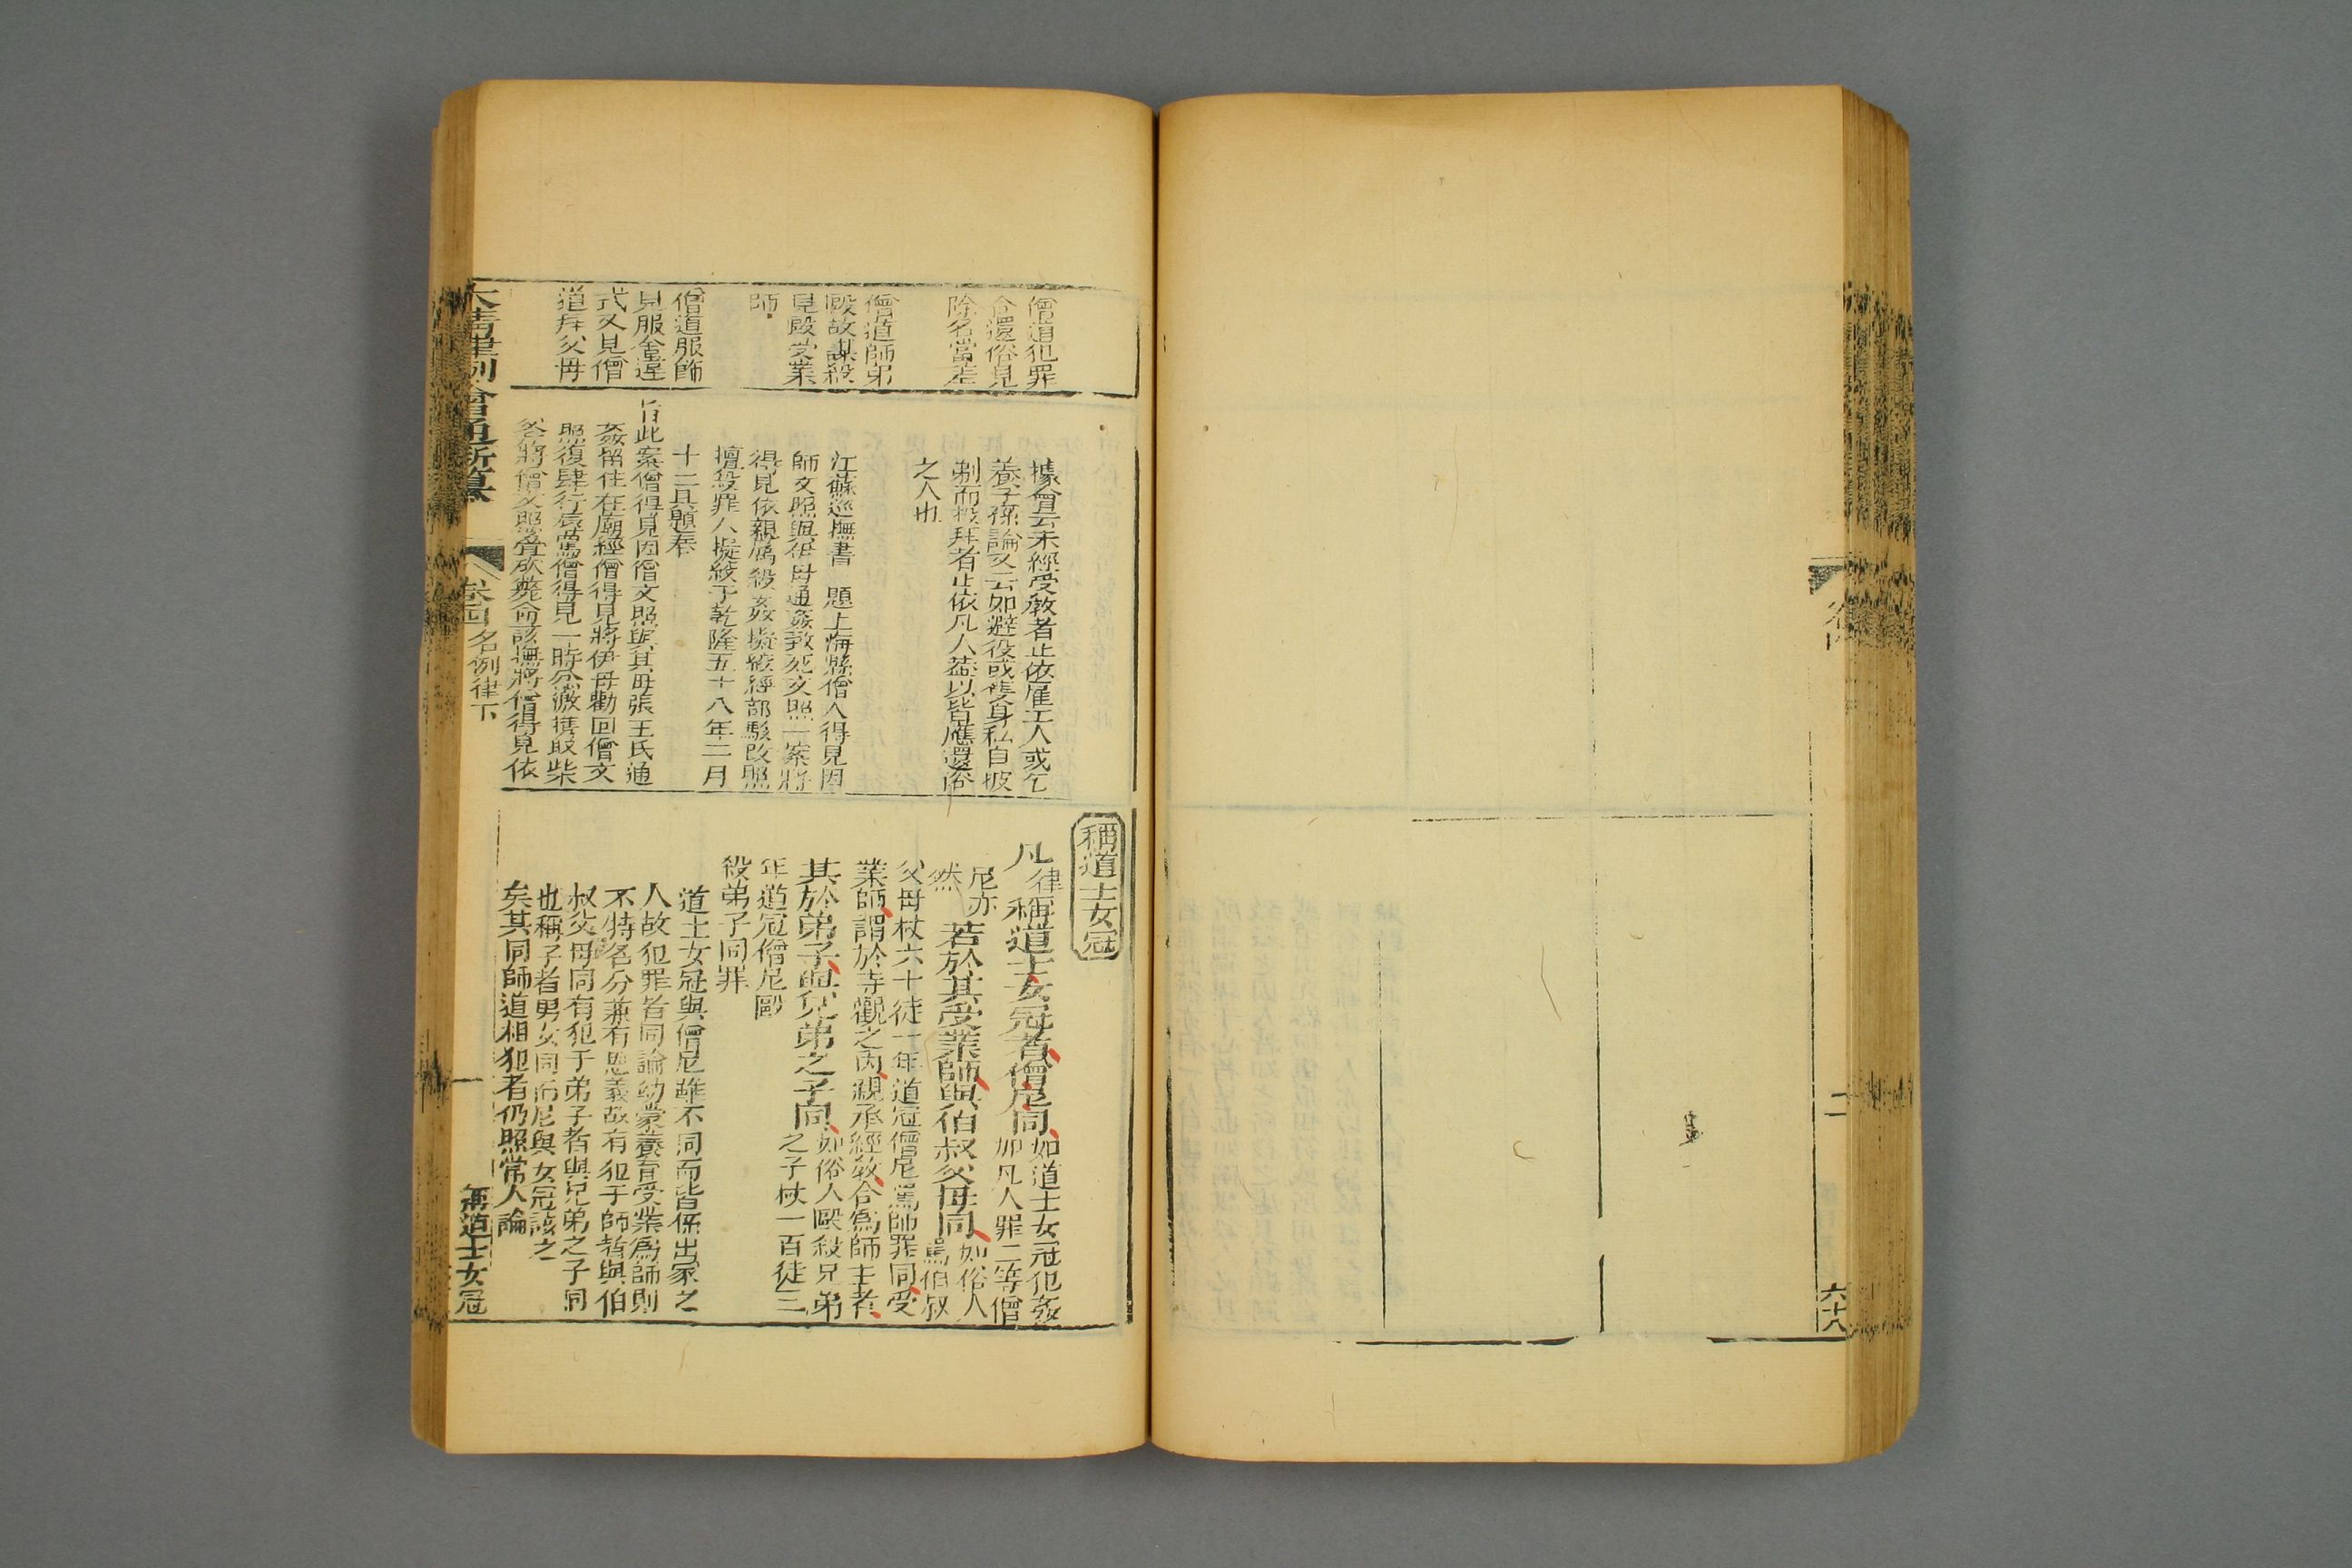 二
六十八
僧道犯罪
令還俗見
除名當差
僧道師弟
毆故謀殺
見毆受業
師
僧道服飾
見服舍違
式又見僧
道拜父母
據會云未經受教者止依雇工人或乞
養子孫論又云如避役或隻身私自披
剃而投拜者止依凡人葢以皆應還俗
之人也
江蘇巡撫書 題上海縣僧人得見因
師文照與伊母通姦致死文照一案將
得見依親屬殺姦擬絞經部駁改照
擅殺罪人擬絞于乾隆五十八年二月
十二日題奏
旨此案僧得見因僧文照與其母張王氏通
姦留住在廟經僧得見將伊母勸回僧文
照復肆行辱罵僧得見一時忿激攜取柴
斧將僧文照砍斃命該撫將僧得見依
稱道士女冠
凡律稱道士女冠者僧尼同如道士女冠犯姦
加凡人罪二等僧
尼亦
然若於其受業師與伯叔父母同如俗人
罵伯叔
父母杖六十徒一年道冠僧尼罵師罪同受
業師謂於寺觀之內親承經教合爲師主者
其於弟子與兄弟之子同如俗人毆殺兄弟
之子杖一百徒三
年道冠僧尼毆
殺弟子同罪
道士女冠與僧尼雖不同而皆係出家之
人故犯罪者同論幼蒙養育受業爲師則
不特名分兼有恩義故有犯于師者與伯
叔父母同有犯于弟子者與兄弟之子同
也稱子者男女同而尼與女冠該之
矣其同師道相犯者仍照常人論
大清律例會通新纂
卷四 名例律下
一
稱道士女冠